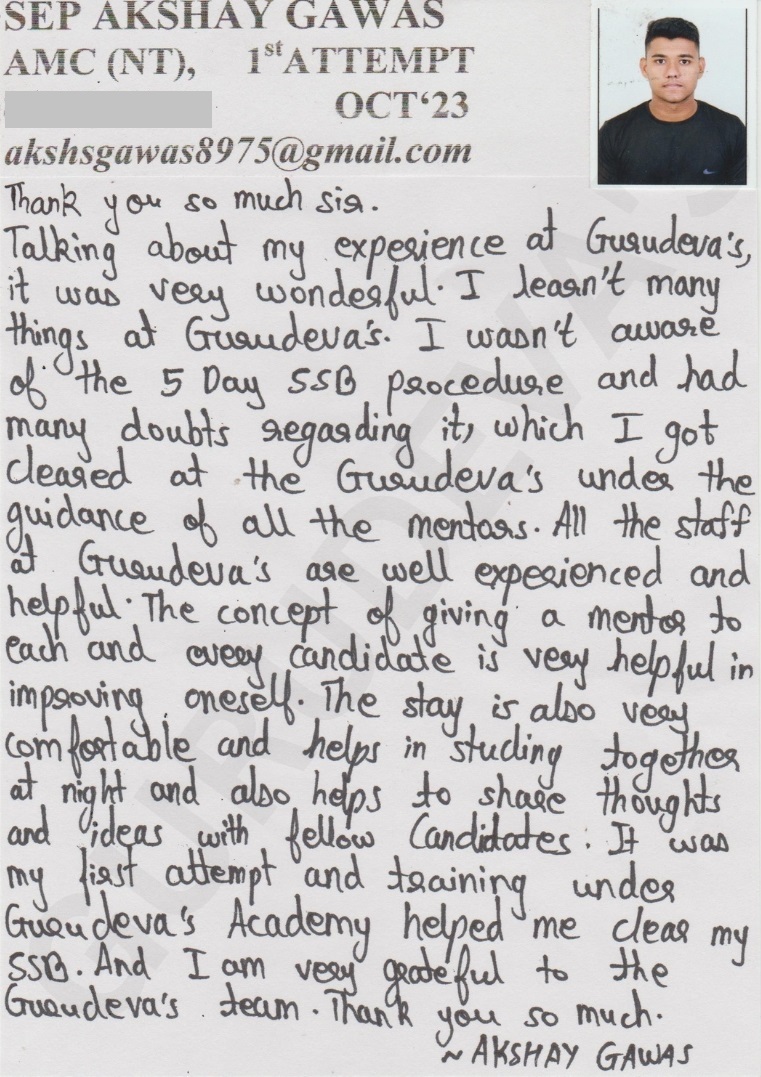 SEP AKSHAY GAWAS
AMC (NT), 1st ATTEMPT
OCT'23
akshsgawas8975@gmail.com
Thank you so much sir.
Talking about my experience at Gurudeva's,
it was very wonderful. I learn't many
things at Gurudeva's. I wasn't aware
of the 5 Day SSB procedure and had
many doubts regarding it, which I got
cleared at the Gurudeva's under the
guidance of all the mentors. All the staff
at Gurudeva's are well experienced and
helpful. The concept of giving a mentor to
each and every candidate is very helpful in
improving oneself. The stay is also very
comfortable and helps in studing together
at night and also helps to share thoughts
and ideas with fellow Candidates. It was
my first attempt and training under
Gurudeva's Academy helped me clear my
SSB. And I am very grateful to the
Gurudeva's team. Thank you so much.
~ AKSHAY GAWAS
GURUDEVA'S